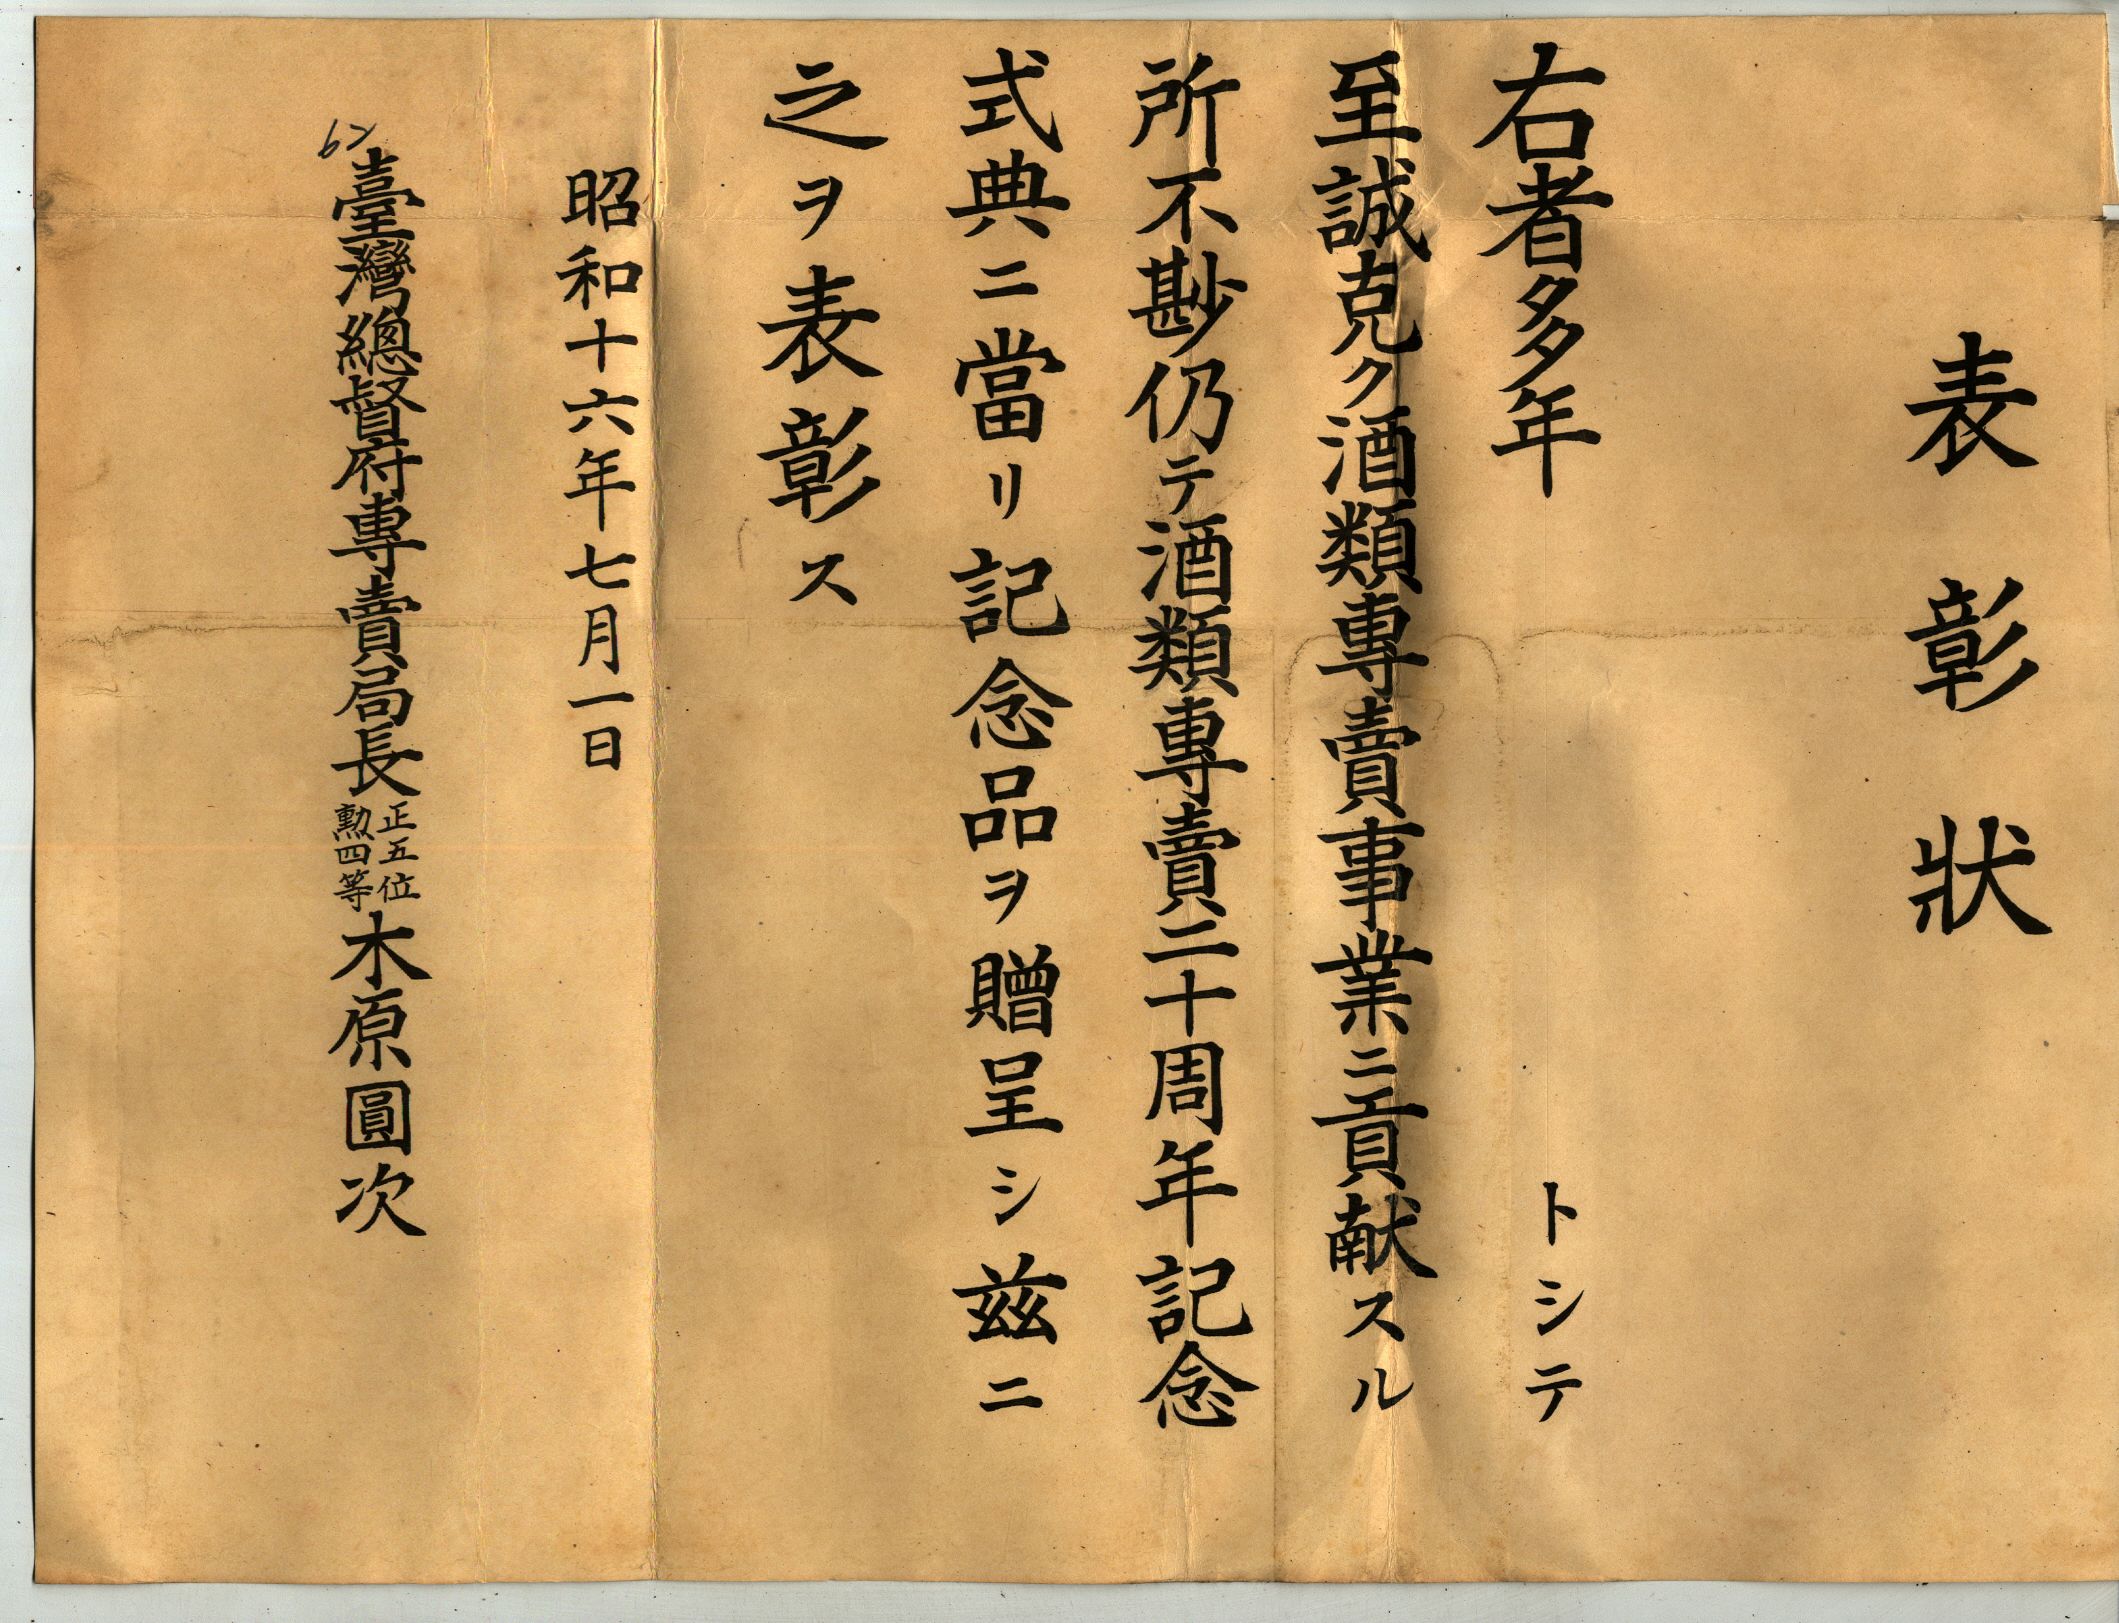 表彰狀
右者多年　　　トシテ
至誠克ク酒類專賣事業ニ貢献スル
所不尠仍テ酒類專賣二十周年記念
式典ニ當リ記念品ヲ贈呈シ茲ニ
之ヲ表彰ス
昭和十六年七月一日
臺灣總督府專賣局長 正五位 勲四等 木原圓次